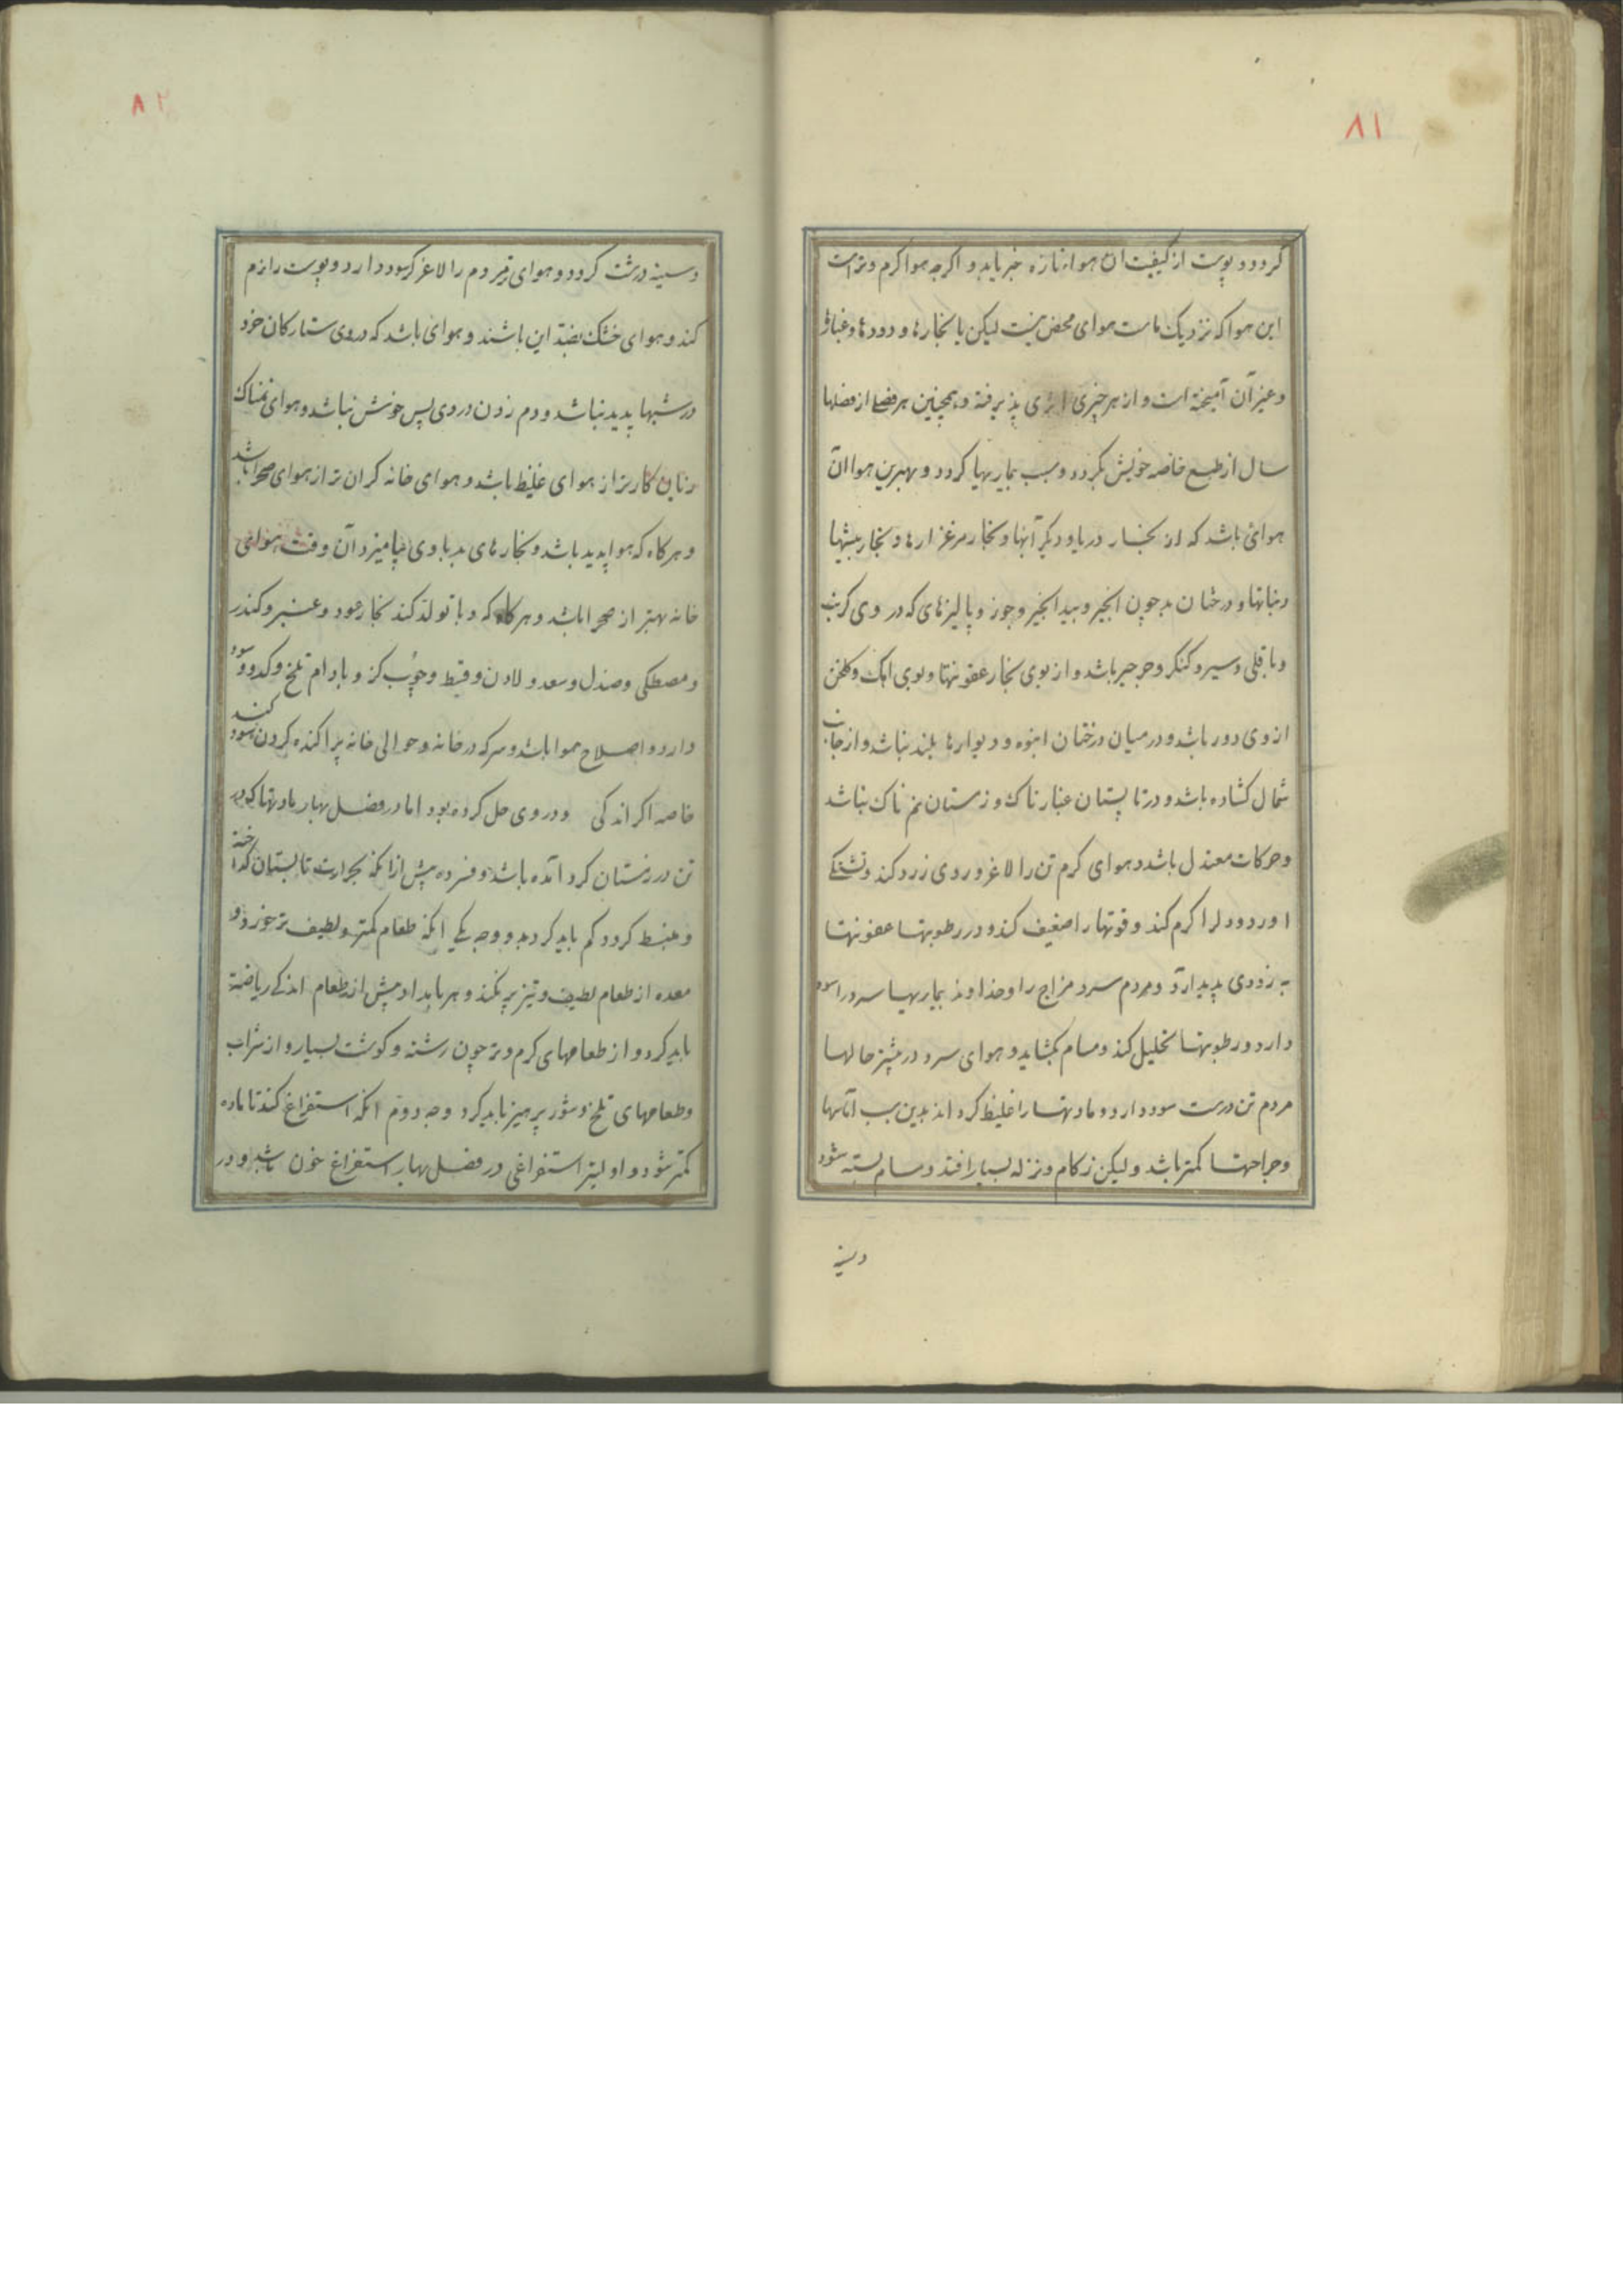 ۸۱
کردد و پوست از کیفیت آن هواء تازه خبر یابد و اکرچه هوا کرم و تر است
این هوا که نزدیک ماست هوای محض نیست لیکن با بخارها و دودها و غبارها
و غیر آن آمیخته است و از هر چیزی اثری پذیرفته و همچنین هر فصلی از فصلها
سال از طبع خاصه خویش بکردد و سبب بماریها کردد و بهترین هوا آن
هوائی باشد که از بخار دریا و دیکر آبها و بخار مرغزارها و بخار بیشها
و نباتها و درختان بد چون انجیر و بید انجیر و جوز و پالیزهای که در وی کرنب
و باقلی و سیر و کنکر و جرجیر باشد و از بوی بخار عفونتها و بوی اهک و کلخن
از وی دور باشد و در میان درختان انبوه و دیوارها بلند نباشد و از جانب
شمال کشاده باشد و در تابستان غبارناک و زمستان نم ناک نباشد
و حرکات معتدل باشد و هوای کرم تن را لاغر و روی زرد کند و تشنکی
اورد و دل را کرم کند و قوتها را ضعیف کند و در رطوبتها عفونتها
به زودی پدید ارد و مردم سرد مزاج را و خداوند بیماریها سرد را سود
دارد و رطوبتها تحلیل کند و مسام بکشاید و هوای سرد در بیشتر حالها
مردم تن درست سود دارد و مادتها را غلیظ کرداند بدین سبب آماسها
و جراحتها کمتر باشد و لیکن زکام و نزله بسیار افتد و مسام بسته شود
و سینه
۸۲
و سینه درشت کردد و هوای تر مردم را لاغر کرسود دارد و پوست را نرم
کند و هوای خشک بضد این باشند و هوای باشد که در وی ستارکان خرد
در شبها پدید نباشد و دم زدن در وی بس خوش نباشد و هوای نمناک
کاریز از هوای غلیظ باشد و هوای خانه کران تر از هوای صحرا باشد
و هر کاه که هوا پدید باشد و بخارهای بد با وی نیامیزد آن وقت هوای
خانه بهتر از صحرا باشد و هر کاه که وبا تولد کند بخار عود و عنبر و کندر
و مصطکی و صندل و سعد و لادن و قسط و چوب کز و بادام تلخ و کدو سود
دارد و اصلاح هوا باشد و سرکه در خانه و حوالی خانه پراکنده کردن سود کند
خاصه اکر اندکی در وی حل کرده بود اما در فصل بهار مادتها که در
تن در زمستان کرد آمده باشد و فسرده پیش از آنکه بحرارت تابستان کداخته
و منبسط کردد کم باید کرد بدو وجه یکی آنکه طعام کمتر و لطیف تر خورد و
معده از طعام لطیف و تیز پر نکند و هر بامداد پیش از طعام اندکی ریاضت
باید کرد و از طعامهای کرم و تر چون رشته و کوشت بسیار و از شراب
و طعامهای تلخ و شور پرهیز باید کرد وجه دوم آنکه استفراغ کند تا ماده
کمتر شود و اولیتر استفراغی در فصل بهار استفراغ خون باشد و در